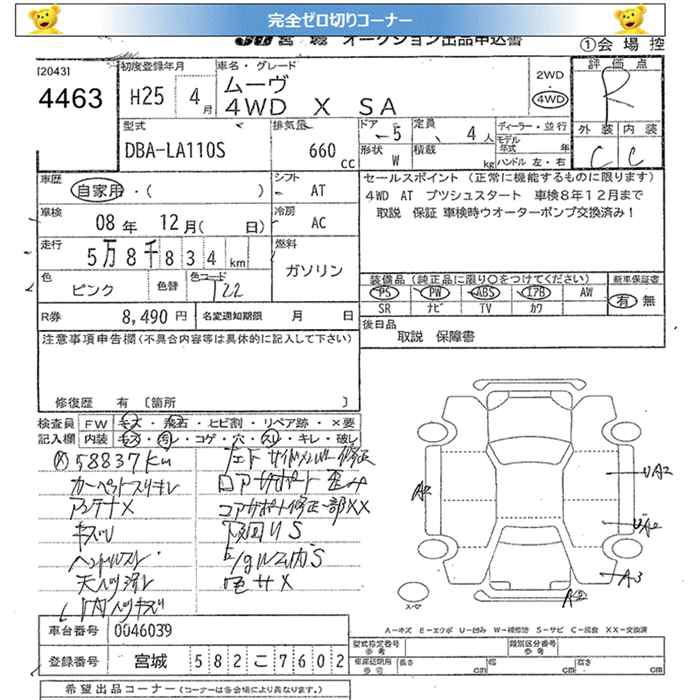 完全ゼロ切りコーナー
宮城 オークション出品申込書
①会場控
[2043]
4463
初度登録年月
H25 4月
車名・グレード
ムーヴ
4WD X SA
2WD
4WD
評価点
R
外装 内装
C C
型式
DBA-LA110S
排気量
660 cc
ドア 5
定員 4人
形状 W
積載 kg
ディーラー・並行
モデル年式 年
ハンドル 左・右
車歴
自家用・( )
シフト
AT
車検
08年 12月( 日)
冷房
AC
走行
5万8千834km
燃料
ガソリン
色
ピンク
色替
色コード
122
R券 8,490円
名変通知期限 月 日
セールスポイント (正常に機能するものに限ります)
4WD AT プツシュスタート 車検8年12月まで
取説 保証 車検時ウオーターポンプ交換済み!
装備品 (純正品に限り〇をつけてください)
PS PW ABS エアB AW
SR ナビ TV カワ
新車保証書
有 無
後日品
取説 保障書
注意事項申告欄(不具合内容等は具体的に記入して下さい)
修復歴 有 〔箇所 〕
検査員 FW キズ・飛石・ヒビ割・リペア跡・×要
記入欄 内装 キズ・汚・コゲ・穴・スレ・キレ・破レ
58837Km
カーペットスリキレ
アンテナX
キズU
天井
内
フェンド サイドメンバー修正
コアサポート 歪み
コアサポート修正 一部XX
下回りS
E/g S
色サメ
A2
UA2
A3
スペア
A-キズ E-エクボ U-凹み W-補修跡 S-サビ C-腐食 XX-交換済
車台番号 0046039
登録番号 宮城 582こ7602
型式指定番号
参考
類別区分番号
参考
車庫証明用
参考
長さ cm 幅 cm 高さ cm
希望出品コーナー (コーナーは各会場により異なります。)